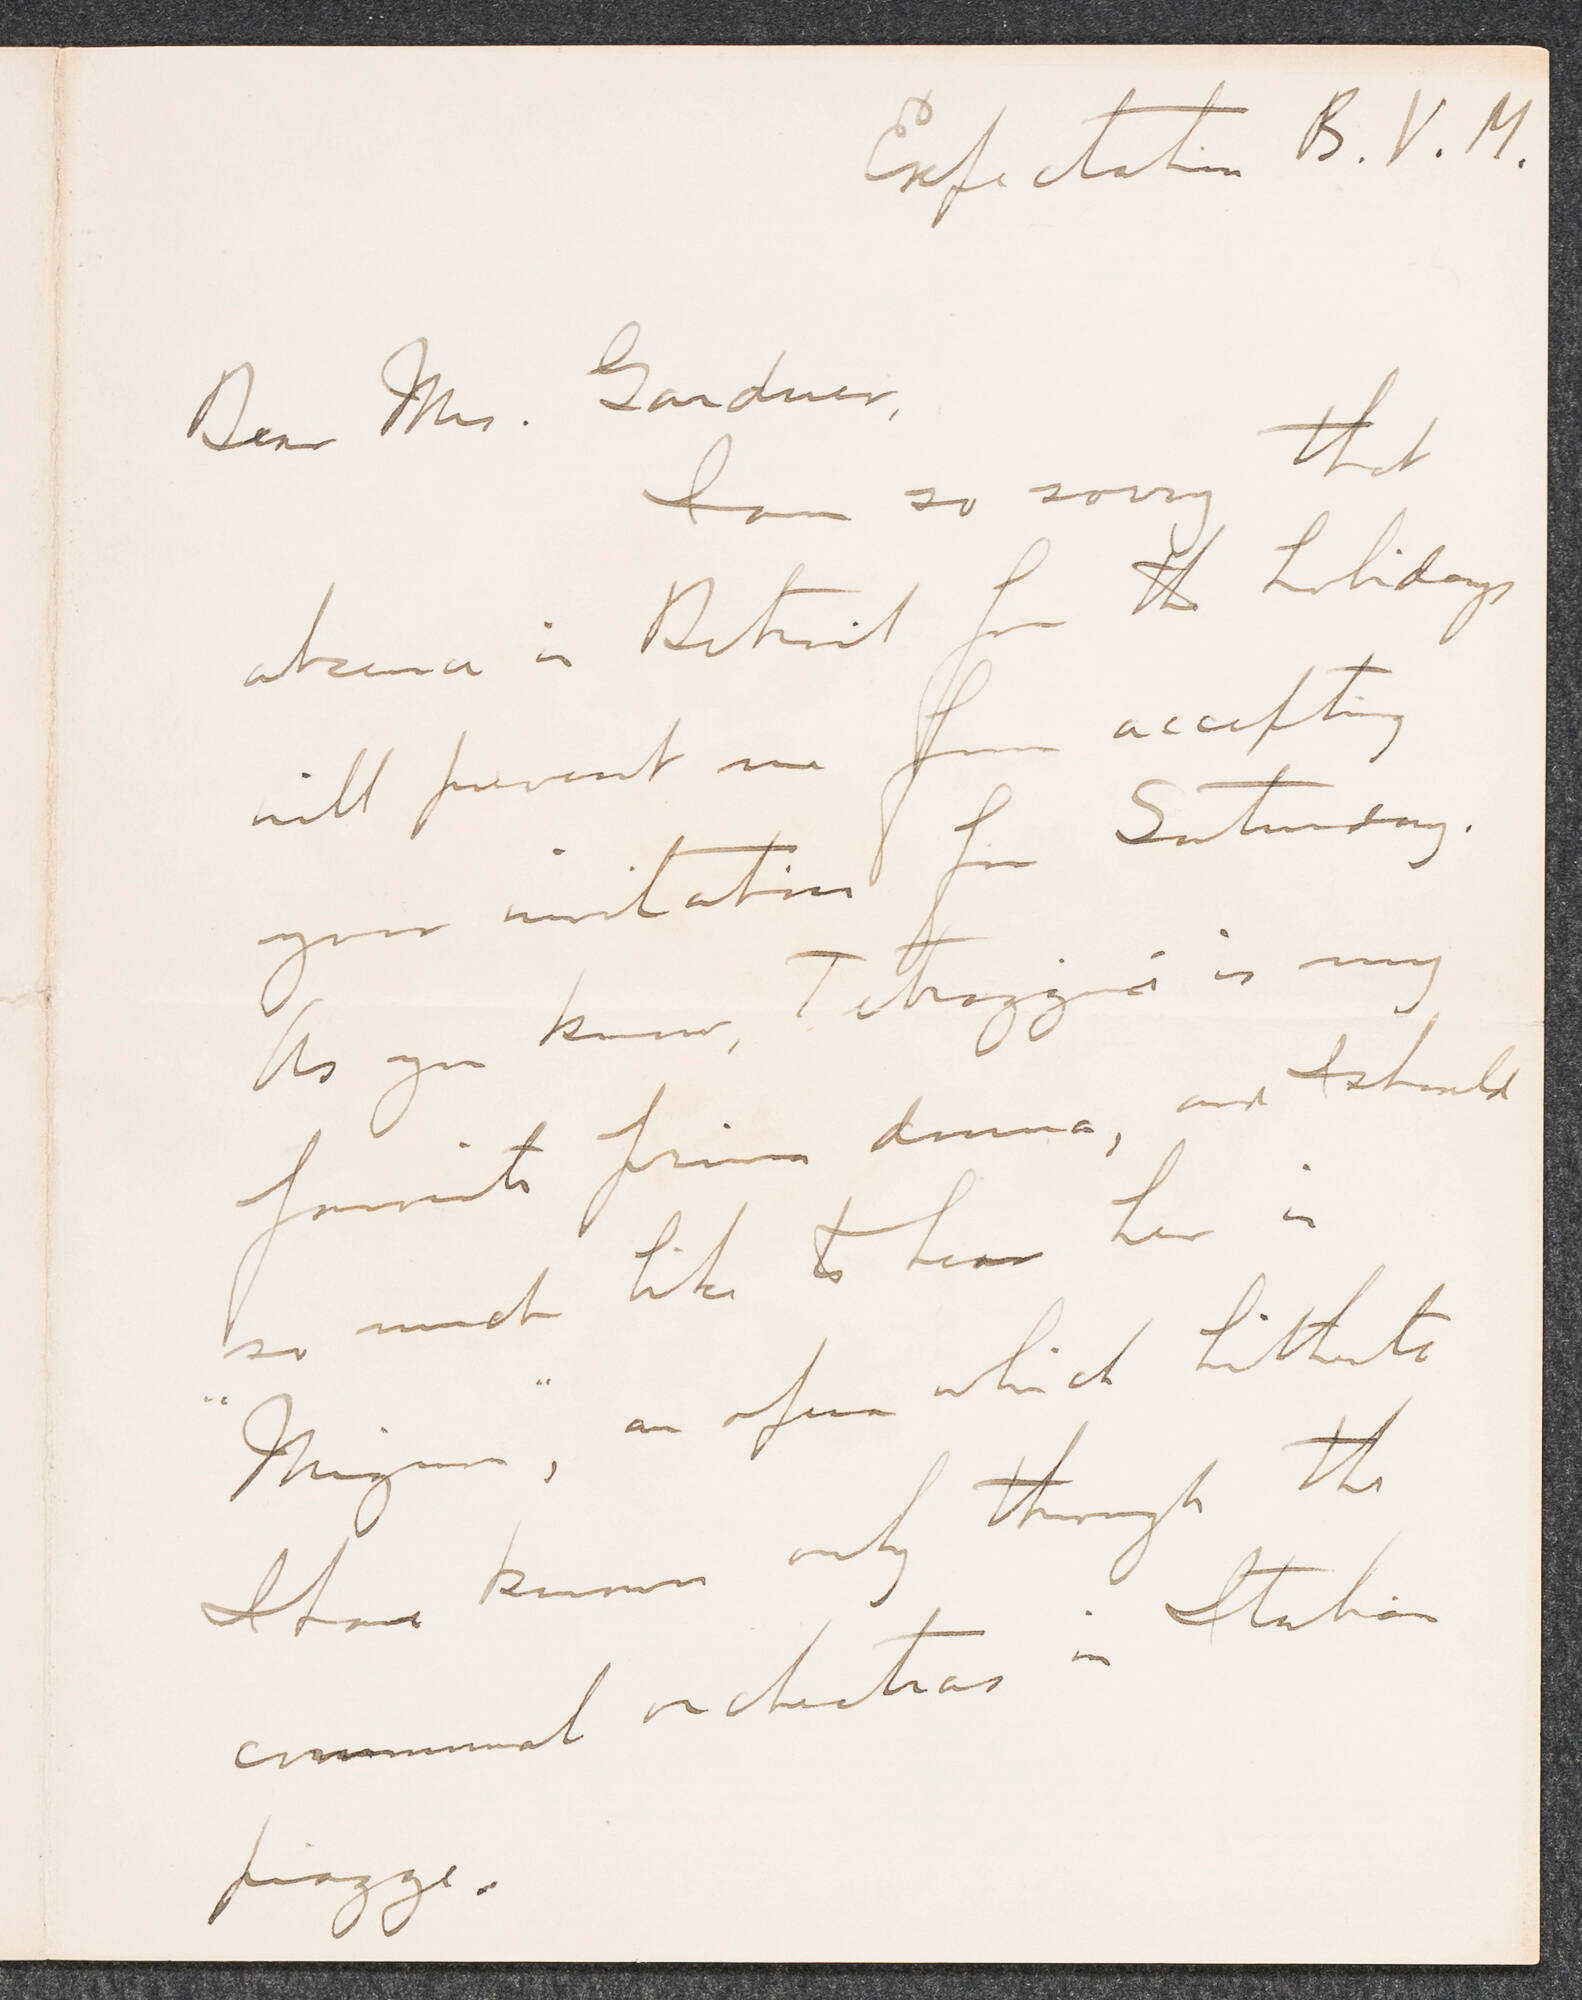 Expectation B. V. M.
Dear Mrs. Gardner,
I am so sorry that
absence in Detroit for the holidays
will prevent me from accepting
your invitation for Saturday.
As you know, Tetrazzini is my
favorite prima donna, and I should
so much like to hear her in
"Mignon", an opera which hitherto
I have known only through the
communal orchestras in Italian
piazze.